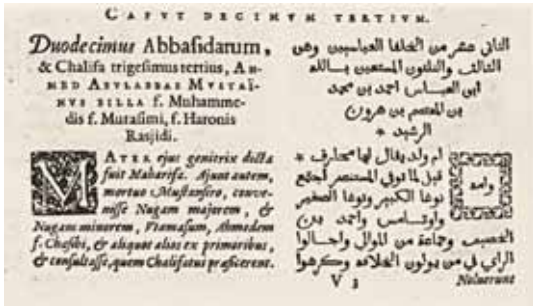 CAPUT DECIMUM TERTIUM.
Duodecimus Abbasidarum,
& Chalifa trigesimus tertius, AH-
MED ABULABBAS MUSTAÏ-
NUS BILLA f. Muhamme-
dis f. Mutasimi, f. Haronis
Rasjidi.
VATER ejus genitrix dicta
fuit Maharifa. Ajunt autem,
mortuo Mustansiro, conve-
nisse Nugam majorem, &
Nugam minorem, Utamasum, Ahmedem
f. Chasibi, & aliquot alios ex primoribus,
& consultasse, quem Chalifatus praeficerent.
الثاني عشر من الخلفا العباسيين وهو
الثالث والثلثون المستعين بالله
ابي العباس احمد بن محمد
بن المعتصم بن هرون
الرشيد *
وامه
ام ولد يقال لها مخارف *
قيل لما توفي المستنصر اجتمع
نوغا الكبير ونوغا الصغير
واوتامس واحمد بن
الخصيب وجماعة من الموال واحالوا
الراي في من يولون الخلافة وكرهوا
V 3
Noluerunt